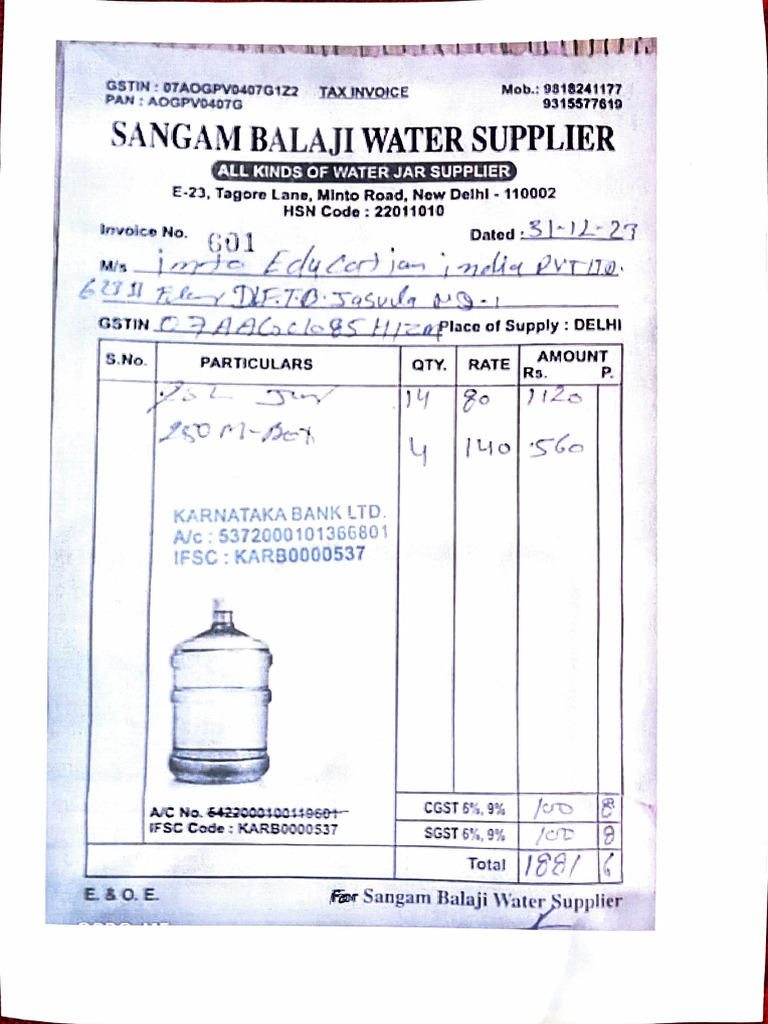 GSTIN : 07AOGPV0407G1Z2 TAX INVOICE Mob.: 9818241177
PAN : AOGPV0407G 9315577619
SANGAM BALAJI WATER SUPPLIER
ALL KINDS OF WATER JAR SUPPLIER
E-23, Tagore Lane, Minto Road, New Delhi - 110002
HSN Code : 22011010
Invoice No. 601 Dated : 31-12-23
M/s India PVT LTD.
GSTIN Place of Supply : DELHI
S.No. PARTICULARS QTY. RATE AMOUNT
Rs. P.
20 L Jar 14 80 1120
250 M-Box 4 140 560
KARNATAKA BANK LTD.
A/c : 5372000101366801
IFSC : KARB0000537
A/C No. 5422000100119601
IFSC Code : KARB0000537
CGST 6%, 9% 100 8
SGST 6%, 9% 100 8
Total 1881 6
E. & O. E. For Sangam Balaji Water Supplier